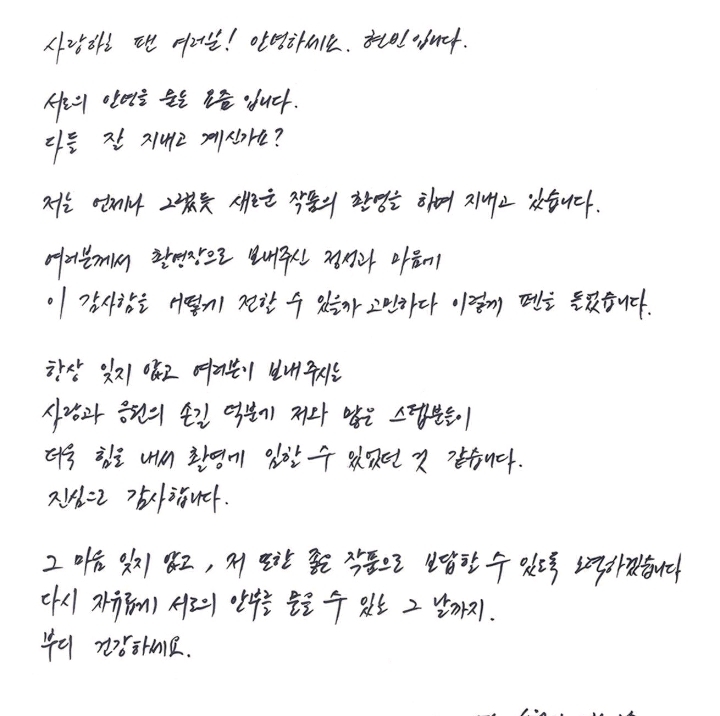 사랑하는 팬 여러분! 안녕하세요. 현빈입니다.
서로의 안녕을 묻는 요즘 입니다.
다들 잘 지내고 계신가요?
저는 언제나 그랬듯 새로운 작품의 촬영을 하며 지내고 있습니다.
여러분께서 촬영장으로 보내주신 정성과 마음에
이 감사함을 어떻게 전할 수 있을까 고민하다 이렇게 펜을 들었습니다.
항상 잊지 않고 여러분이 보내주시는
사랑과 응원의 손길 덕분에 저와 많은 스텝분들이
더욱 힘을 내서 촬영에 임할 수 있었던 것 같습니다.
진심으로 감사합니다.
그 마음 잊지 않고, 저 또한 좋은 작품으로 보답할 수 있도록 노력하겠습니다
다시 자유롭게 서로의 안부를 물을 수 있는 그 날까지.
부디 건강하세요.